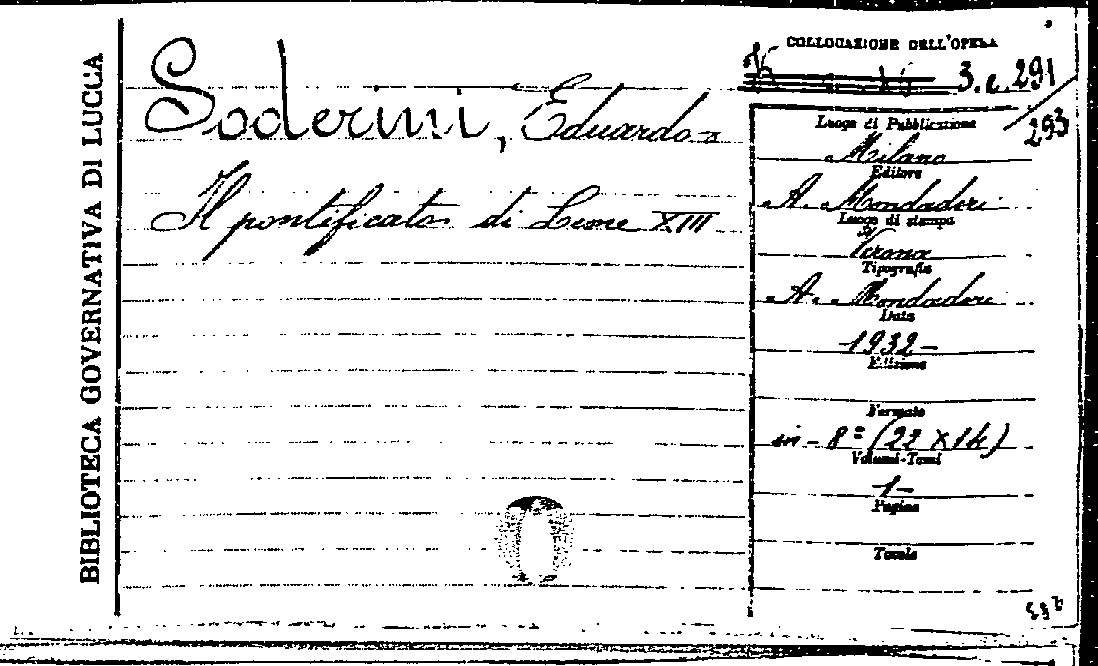 BIBLIOTECA GOVERNATIVA DI LUCCA
Soderini, Eduardo
Il pontificato di Leone XIII
COLLOCAZIONE DELL'OPERA
3.c.291/293
Luogo di Pubblicazione
Milano
Editore
A. Mondadori
Luogo di stampa
Verona
Tipografia
A. Mondadori
Data
1932-
Edizione
Formato
in-8º (22 X 14)
Volumi-Tomi
1-
Pagine
Tavole